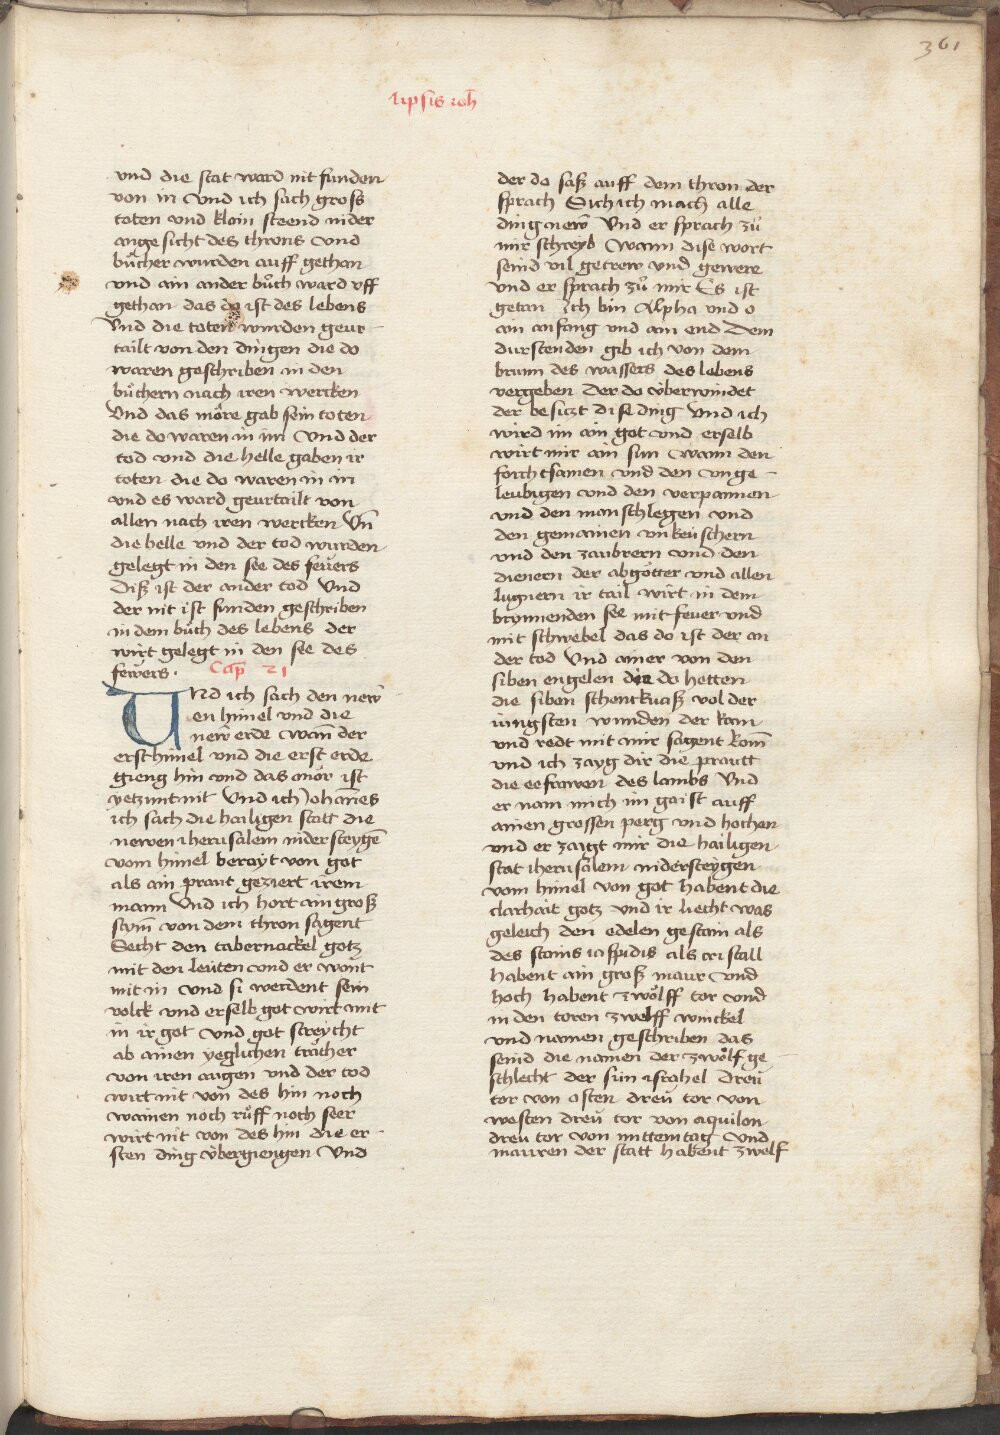 361
lipsis ioh
vnd die stat ward nit funden
von in Vnd ich sach gross
toten vnd klain steend in der
ange sicht des throns Vnd
bůcher wurden auff gethan
vnd ain ander bůch ward vff
gethan das da ist des lebens
Vnd die toten wurden geur-
tailt von den dingen die do
waren geschriben in den
bůchern nach iren wercken
Vnd das möre gab sein toten
die do waren in im Vnd der
tod vnd die helle gaben ir
toten die do waren in in
vnd es ward geurtailt von
allen nach iren wercken Vn̄
die helle vnd der tod wurden
gelegt in den see des feüers
Diß ist der ander tod Vnd
der nit ist funden geschriben
in dem bůch des lebens der
wirt gelegt in den see des
feüers. Cap̄ 21
Vnd ich sach den new̄
en himel vnd die
new erde wan̄ der
erst himel vnd die erst erde
gieng hin vnd das mör ist
yetzunt nit Vnd ich Johan̄es
ich sach die hailigen statt die
newen iherusalem nidersteygē
vom himel berayt von got
als ain praut geziert irem
mann Vnd ich hort ain groß
stym̄ von dem thron sagent
Secht den tabernackel gotz
mit den leüten vnd er wont
mit in Vnd si werdent sein
volck vnd er selb got wirt mit
in ir got Vnd got streycht
ab ainen yeglichen trächer
von iren augen vnd der tod
wirt nit von des hin noch
wainen noch růff noch seer
wirt nit von des hin die er-
sten ding vbergiengen Vnd
der do saß auff dem thron der
sprach Sich ich mach alle
ding new Vnd er sprach zů
mir schreyb Wann dise wort
seind vil getrew vnd gewere
Vnd er sprach zů mir Es ist
getan Ich bin Alpha vnd o
ain anfang vnd ain end Dem
durstenden gib ich von dem
brunn des wassers des lebens
vergeben Der do vberwindet
der besitzt dise ding Vnd ich
wird im ain got vnd er selb
wirt mir ain sun Wann den
forchtsamen vnd den vnge-
leubigen vnd den verpannen
vnd den manschlegen vnd
den gemainen vnkeüschern
vnd den zaubrern vnd den
dienern der abgötter vnd allen
lugnern ir tail wirt in dem
brynnenden see mit feuer vnd
mit schwebel das do ist der an
der tod Vnd ainer von den
siben engelen die do hetten
die siben schenckuaß vol der
iungsten wunden der kam
vnd redt mit mir sagent kom̄
vnd ich zayg dir die prautt
die eefrawen des lambs Vnd
er nam mich im gaist auff
ainen grossen perg vnd hochen
vnd er zaigt mir die hailigen
stat iherusalem nidersteygen
vom himel von got habent die
clarhait gotz vnd ir liecht was
geleich den edelen gestain als
des stains iaspidis als cristall
habent ain groß maur Vnd
hoch habent zwölff tor vnd
in den toren zwelff winckel
vnd namen geschriben das
seind die namen der zwölf ge-
schlecht der sün israhel Dreü
tor von osten dreü tor von
westen dreü tor von aquilon
dreu tor von mittemtag Vnd
mauren der statt habent zwelf